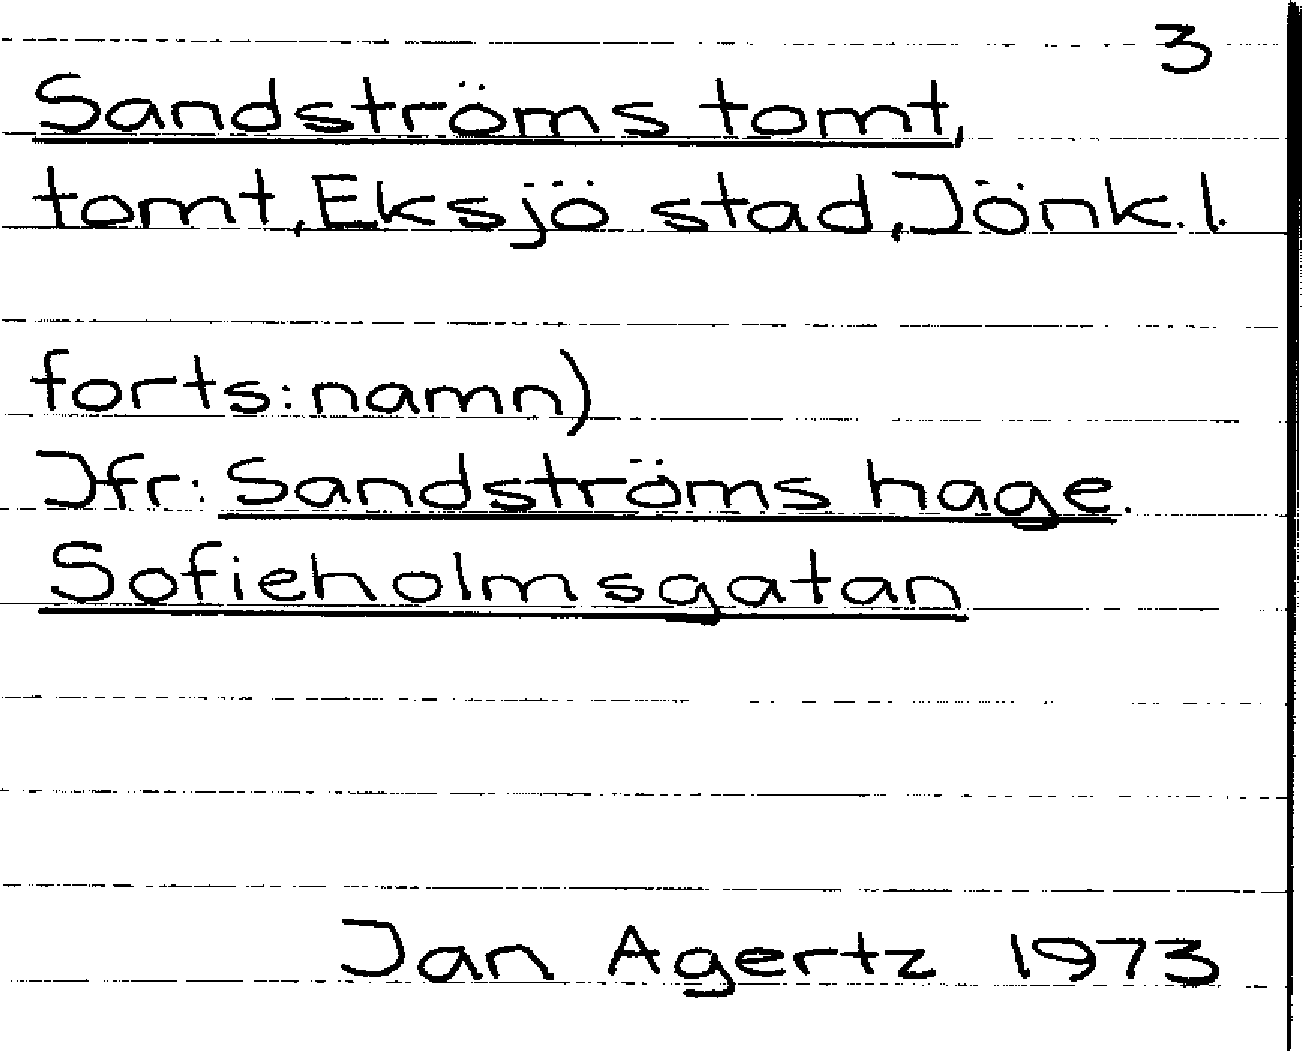 3
Sandströms tomt,
tomt, Eksjö stad, Jönk. l.
forts: namn)
Jfr: Sandströms hage.
Sofieholmsgatan
Jan Agertz 1973